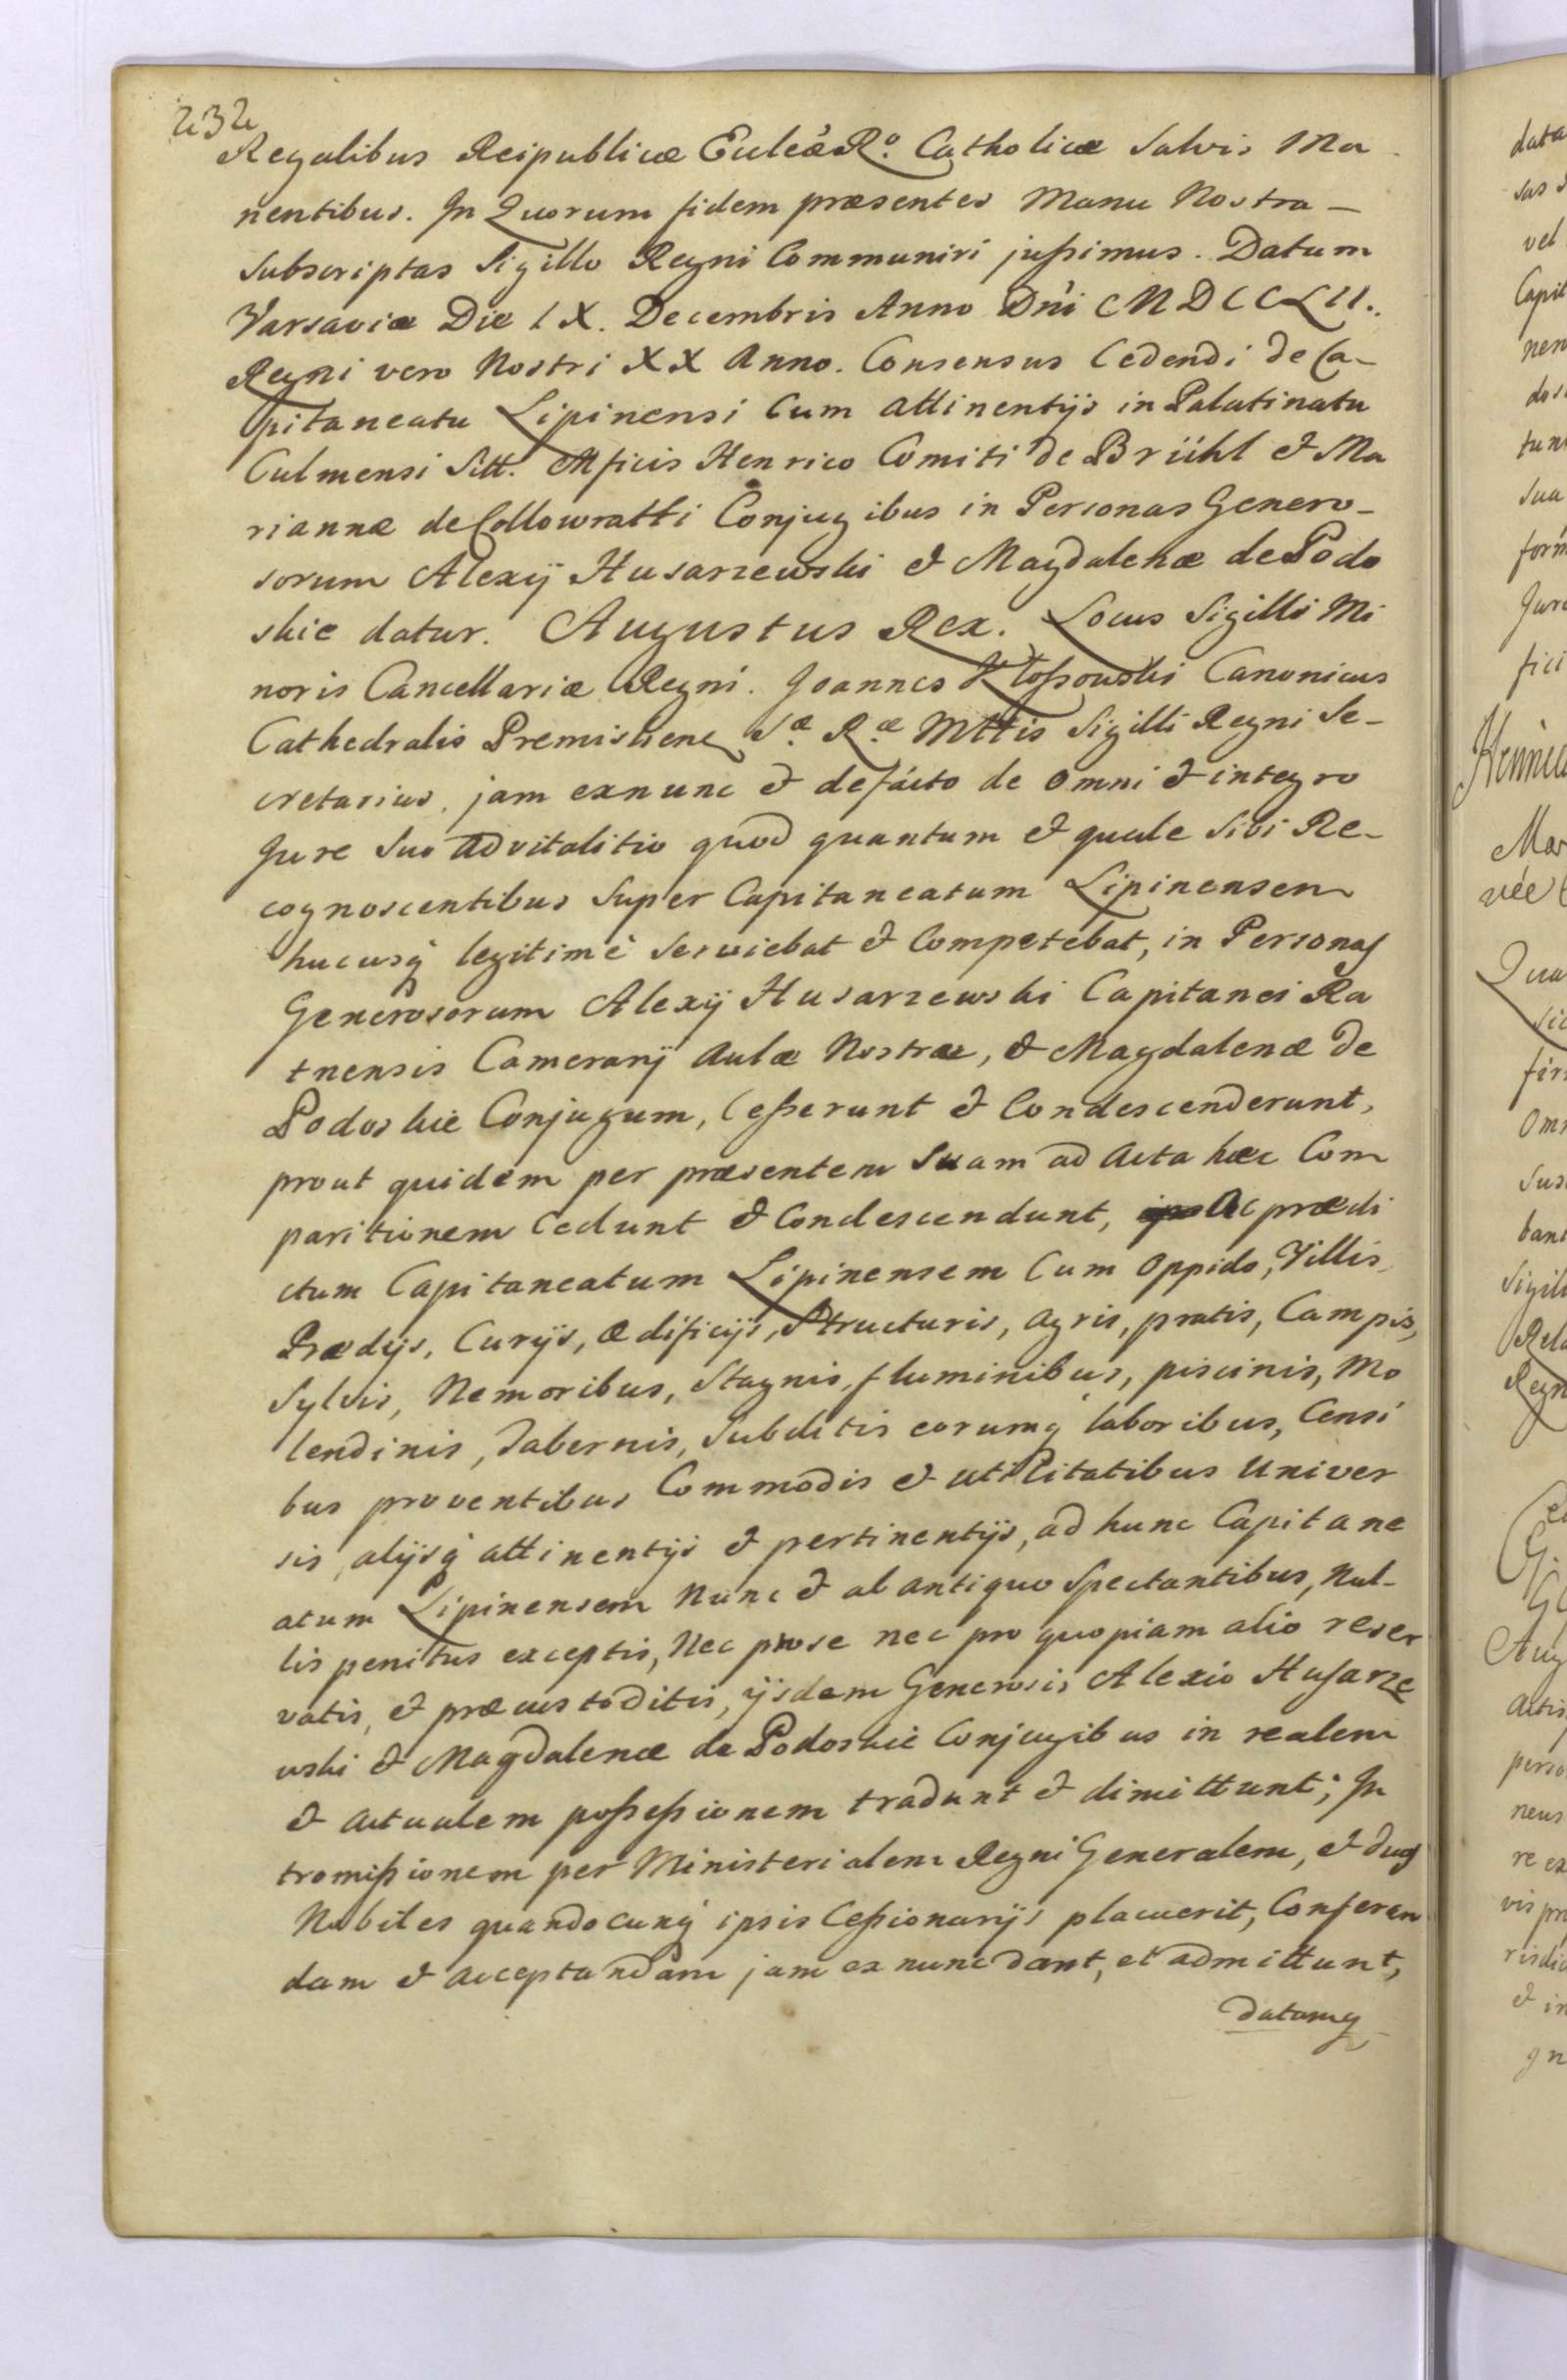 232
Regalibus Reipublicæ Eccleæ Rº. Catholicæ Salvis Ma
nentibus. In Quorum fidem præsentes Manu Nostra —
Subscriptas Sigillo Regni Communiri jussimus. Datum
Varsaviæ Die IX. Decembris Anno Dni MDCCLII.
Regni vero Nostri XX Anno. Consensus Cedendi de Ca-
pitaneatu Lipinensi Cum attinentijs in Palatinatu
Culmensi Sitt. Mficis Henrico Comiti de Brühl & Ma
riannæ de Collowratti Conjugibus in Personas Genero-
sorum Alexij Husarzewski & Magdalenæ de Podo
skie datur. Augustus Rex. Locus Sigilli Mi
noris Cancellariæ Regni. Joannes Kłossowski Canonicus
Cathedralis Premisliens Sæ. Ræ. Mttis Sigilli Regni Se-
cretarius. jam exnunc & defacto de omni & integro
Jure Suo advitalitio quod quantum & quale Sibi Re-
cognoscentibus Super Capitaneatum Lipinensem
hucusq legitimè Serviebat & Competebat, in Personas
Generosorum Alexij Husarzewski Capitanei Ra
tnensis Camerarij Aulæ Nostræ, & Magdalenæ de
Podoskie Conjugum, Cesserunt & Condescenderunt,
prout quidem per præsentem Suam ad Acta hæc Com
paritionem Cedunt & Condescendunt, Ac prædi
ctum Capitaneatum Lipinensem Cum Oppido, Villis,
Prædijs, Curijs, Ædificijs, Structuris, Agris, pratis, Campis,
Sylvis, Nemoribus, Stagnis, fluminibus, piscinis, Mo
lendinis, Tabernis, Subditis eorumq laboribus, Censi
bus proventibus Commodis & utilitatibus Univer
sis, alijsq attinentijs & pertinentijs, ad hunc Capitane
atum Lipinensem Nunc & ab antiquo Spectantibus, Nul-
lis penitus exceptis, Nec prose nec pro quopiam alio reser
vatis, & præcustoditis, ijsdem Generosis Alexio Husarze
wski & Magdalenæ de Podoskie Conjugibus in realem
& Actualem possessionem tradunt & dimittunt; In
tromissionem per Ministerialem Regni Generalem, & duos
Nobiles quandocunq ipsis Cessionarijs placuerit, Conferen
dam & acceptandam jam ex nunc dant, et admittunt,
datamq